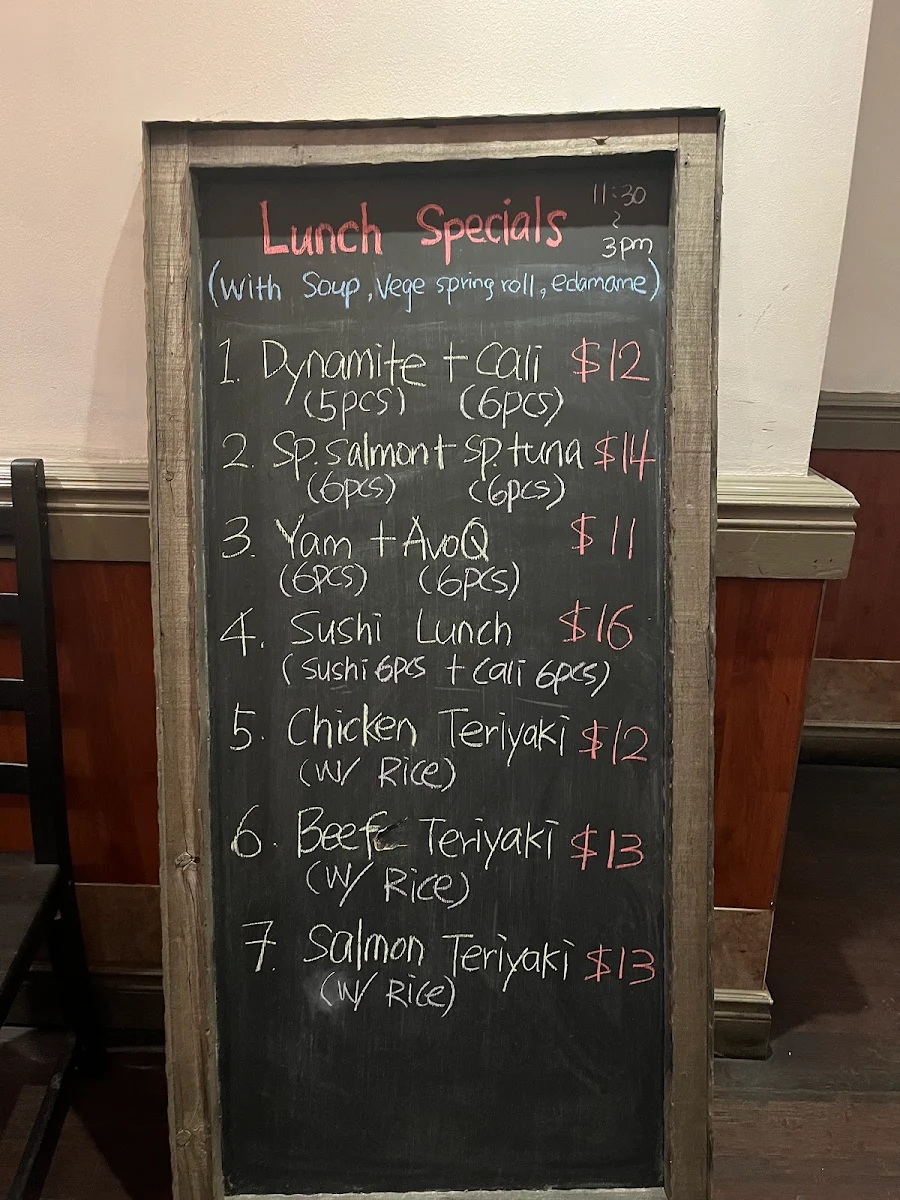 Lunch Specials
11:30
~
3pm
(with Soup, Vege spring roll, edamame)
1. Dynamite + Cali $12
(5pcs) (6pcs)
2. Sp.salmon + sp.tuna $14
(6pcs) (6pcs)
3. Yam + AvoQ $11
(6pcs) (6pcs)
4. Sushi Lunch $16
(sushi 6pcs + Cali 6pcs)
5. Chicken Teriyaki $12
(W/ Rice)
6. Beef Teriyaki $13
(W/ Rice)
7. Salmon Teriyaki $13
(W/ Rice)